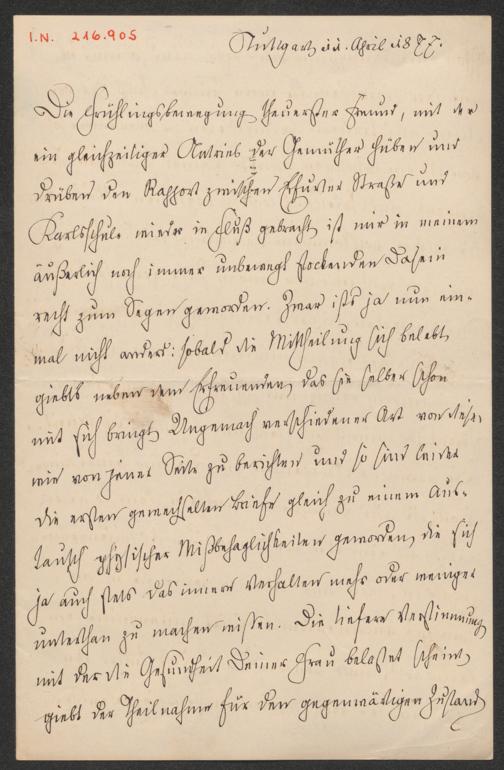 I.N. 216.905
Stuttgart 11. April 1877.
Die Frühlingsbewegung, theuerster Freund, mit der
ein gleichzeitiger Antrieb der Gemüther hüben und
drüben den Rapport zwischen Erfurter Straße und
Karlsschule wieder in Fluß gebracht, ist mir in meinem
äußerlich noch immer unbewegt stockenden Dasein
recht zum Segen geworden. Zwar ists ja nun ein-
mal nicht anders: sobald die Mittheilung sich belebt,
giebts neben dem Erfreuenden, das sie selber schon
mit sich bringt, Ungemach verschiedener Art von dieser
wie von jener Seite zu berichten und so sind leider
die ersten gewechselten Briefe gleich zu einem Aus-
tausch physischer Mißbehaglichkeiten geworden, die sich
ja auch stets das innere Verhalten mehr oder weniger
unterthan zu machen wissen. Die tiefere Verstimmung,
mit der die Gesundheit Deiner Frau belastet scheint,
giebt der Theilnahme für den gegenwärtigen Zustand